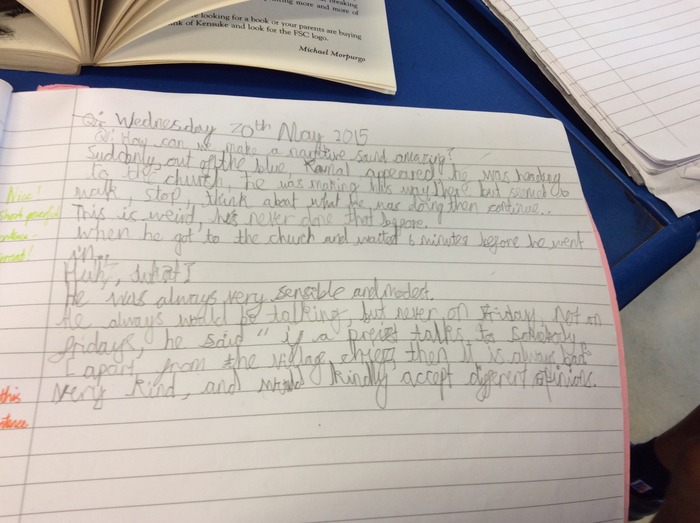 breaking
ting more and more of
e looking for a book or your parents are buying
nk of Kensuke and look for the FSC logo.
Michael Morpurgo
Wednesday 20th May 2015
Q: How can we make a narrative sound amazing?
Suddonly, out of the blue, Kamal appeared, he was heading
to the church, he was making his way there but seemed to
walk, stop, think about what he was doing then continue..
This is weird, he's never done that before.
When he got to the church and waited 6 minutes before he went
in...
Huh, what I
He was always very sensible and modest.
He always would be talking, but never on Friday. Not on
fridays, he said "if a preist talks to
(apart from the village then it is always bad"
very kind, and would kindly accept different opinions.
Nice!
Short powerful
this